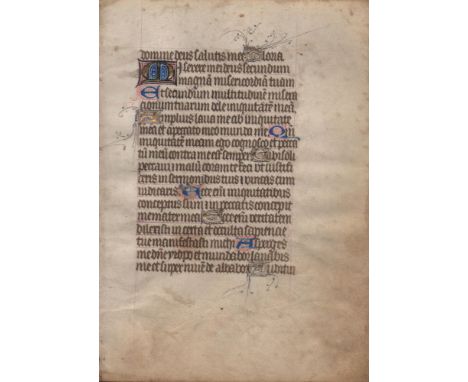 domine deus salutis mee Gloria
Miserere mei deus secundum
magnā misericordiam tuam
Et secundum multitudinē misera
cionum tuarum dele iniquitatē meā
Amplius laua me ab iniquitate
mea et a peccato meo munda me Qm̄
iniquitatē meam ego cognosco et pecca
tū meū contra me est semper Tibi soli
peccaui et malū coram te feci ut iustifi
ceris in sermonibus tuis et uincas cum
iudicaris Ecce eni iniquitatibus
conceptus sum et in peccatis concepit
me mater mea Ecce eni ueritatem
dilexisti incerta et occulta sapiencie
tue manifestasti michi Asperges
me dn̄e ysopo et mundabor lauabis
me et super niuē dealbabor Auditui